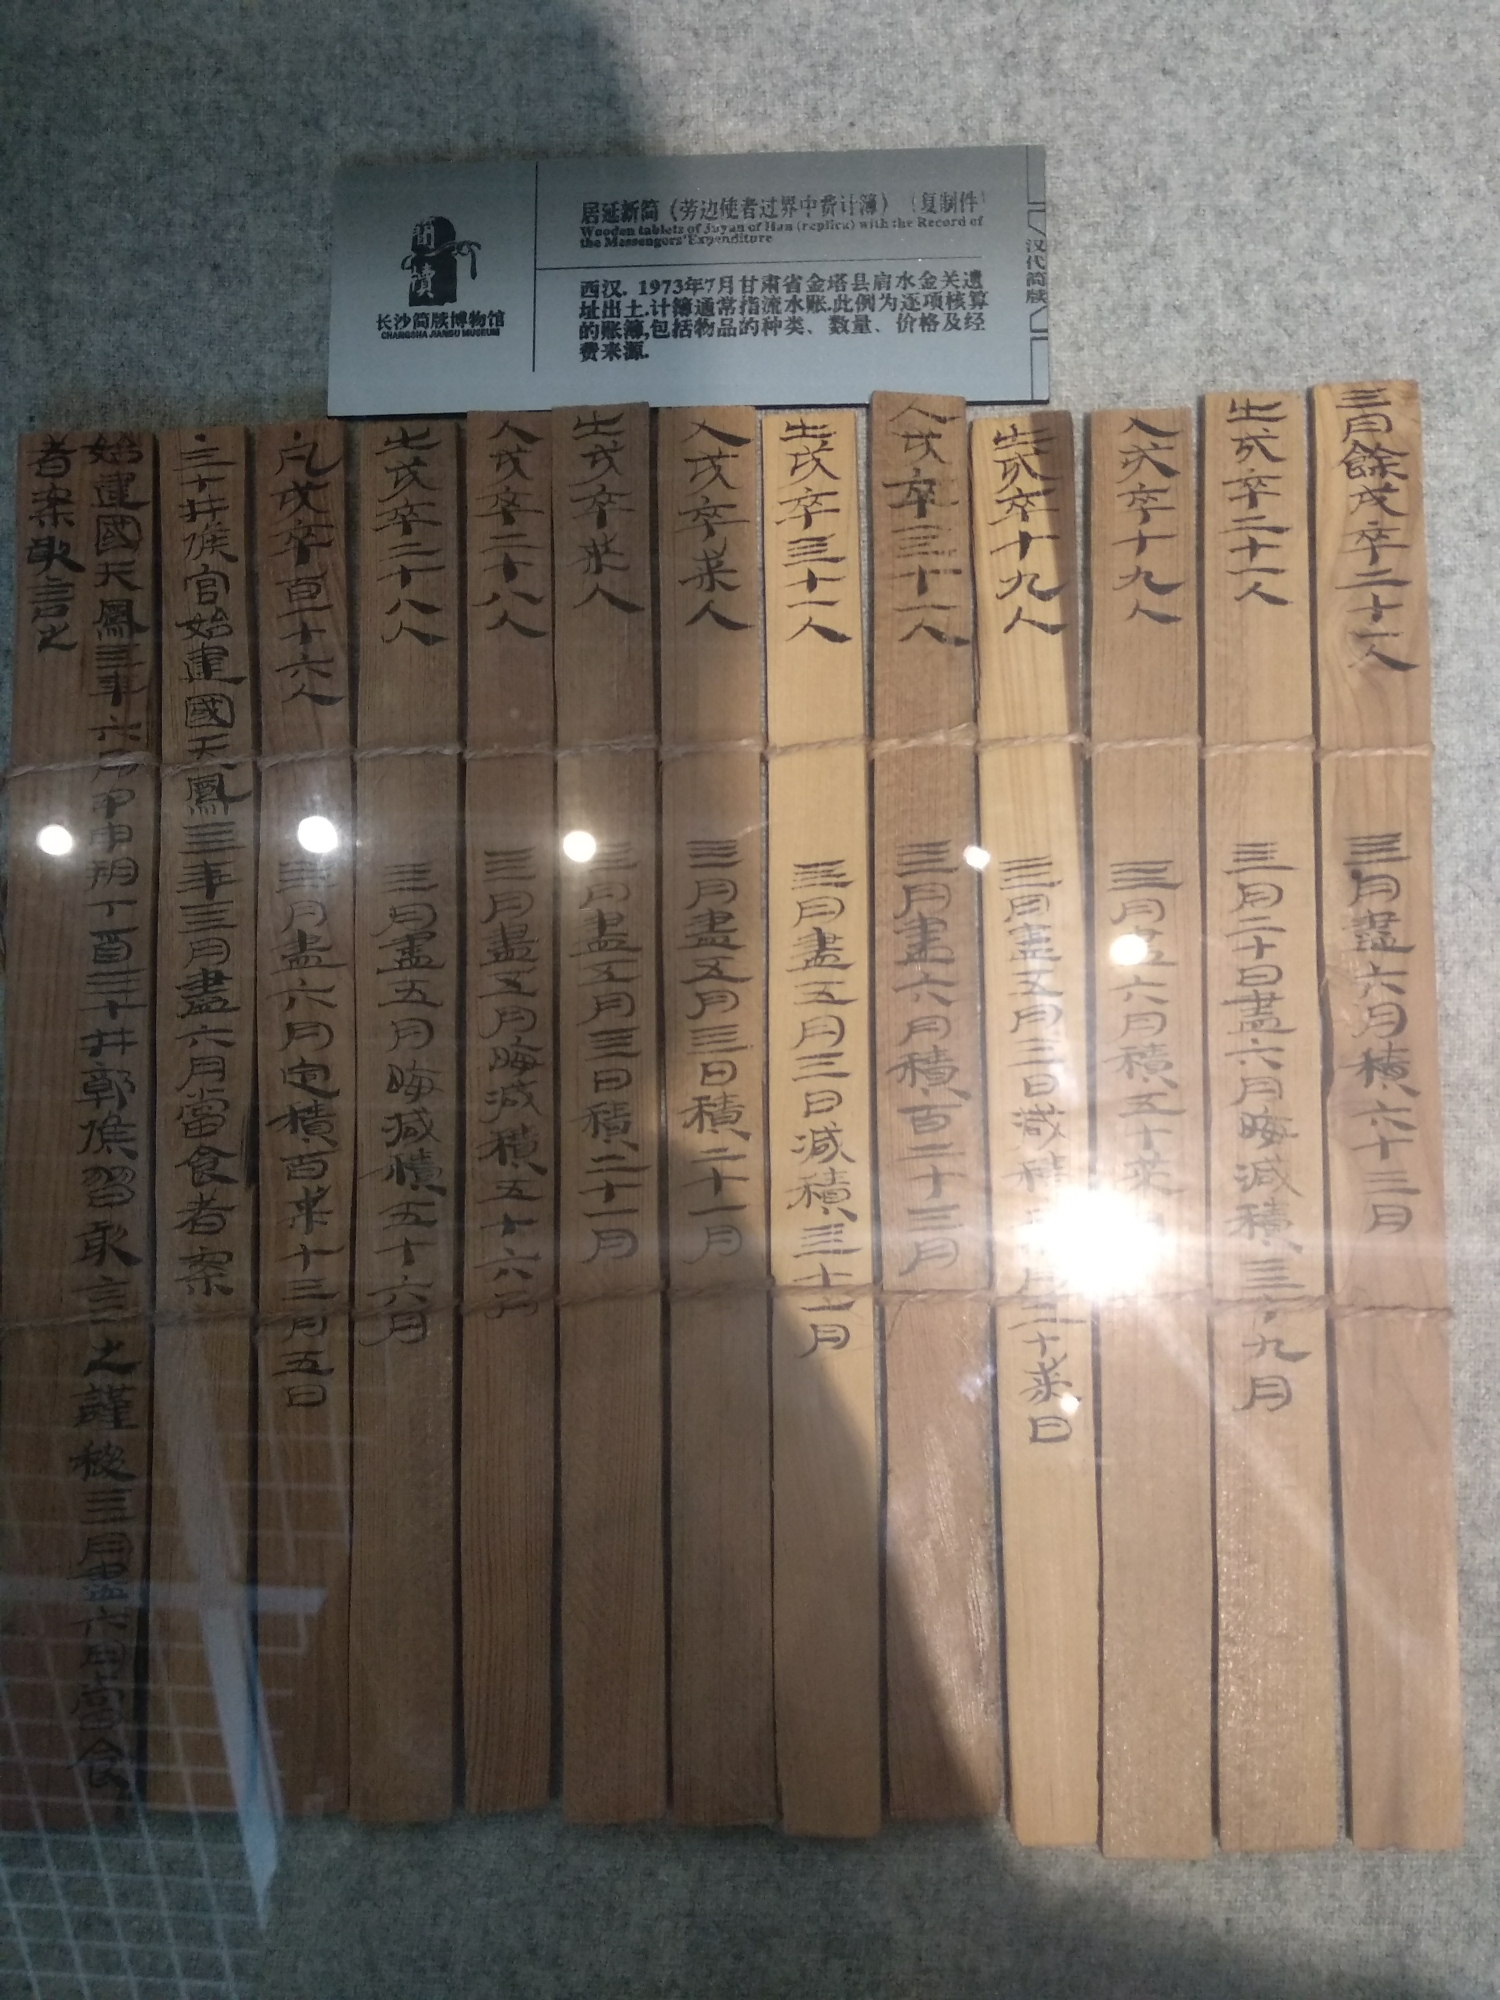 居延新简（劳边使者过界中费计簿）（复制件）
Wooden tablets of Juyan of Han (replica) with the Record of
the Messengers' Expenditure
西汉. 1973年7月甘肃省金塔县肩水金关遗
址出土.计簿通常指流水账.此例为逐项核算
的账簿,包括物品的种类、数量、价格及经
费来源.
簡牘
长沙简牍博物馆
CHANGSHA JIANDU MUSEUM
汉代简牍
三月餘戍卒二十一人 三月盡六月積六十三月
出戍卒二十一人 三月二十日盡六月晦減積三十九月
入戍卒十九人 三月盡六月積五十桼月
出戍卒十九人 三月盡五月三日減積 月二十桼日
入戍卒三十一人 三月盡六月積百二十三月
出戍卒三十一人 三月盡五月三日減積三十一月
入戍卒桼人 三月盡五月三日積二十一月
出戍卒桼人 三月盡五月三日積二十一月
入戍卒二十八人 三月盡五月晦減積五十六月
出戍卒二十八人 三月盡五月晦減積五十六月
凡戍卒百一十六人 三月盡六月定積百桼十三月五日
三十井候官始建國天鳳三年三月盡六月當食者案
始建國天鳳三年六月甲申朔丁酉三十井鄣候習敢言之謹移三月盡六月當食
者案敢言之